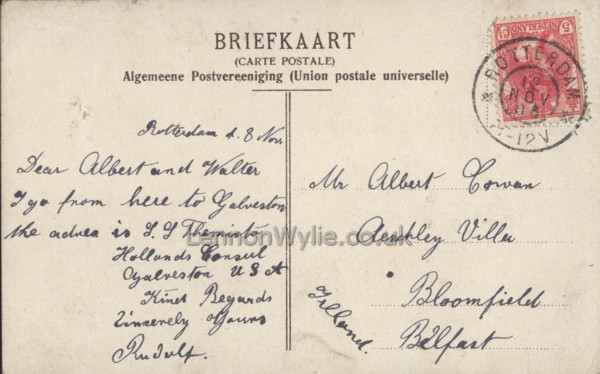 BRIEFKAART
(CARTE POSTALE)
Algemeene Postvereeniging (Union postale universelle)
NEDERLAND
5 Ct
ROTTERDAM
NOV
-12V
Rotterdam d. 8 Nov
Dear Albert and Walter
I go from here to Galveston
the adres is S S Themisto
Hollands Consul
Galveston U S A
Kind Regards
Sincerely Yours
Rudolf.
Mr Albert Cowan
Ashley Villa
Bloomfield
Belfast
Irland.
LennonWylie.co.uk